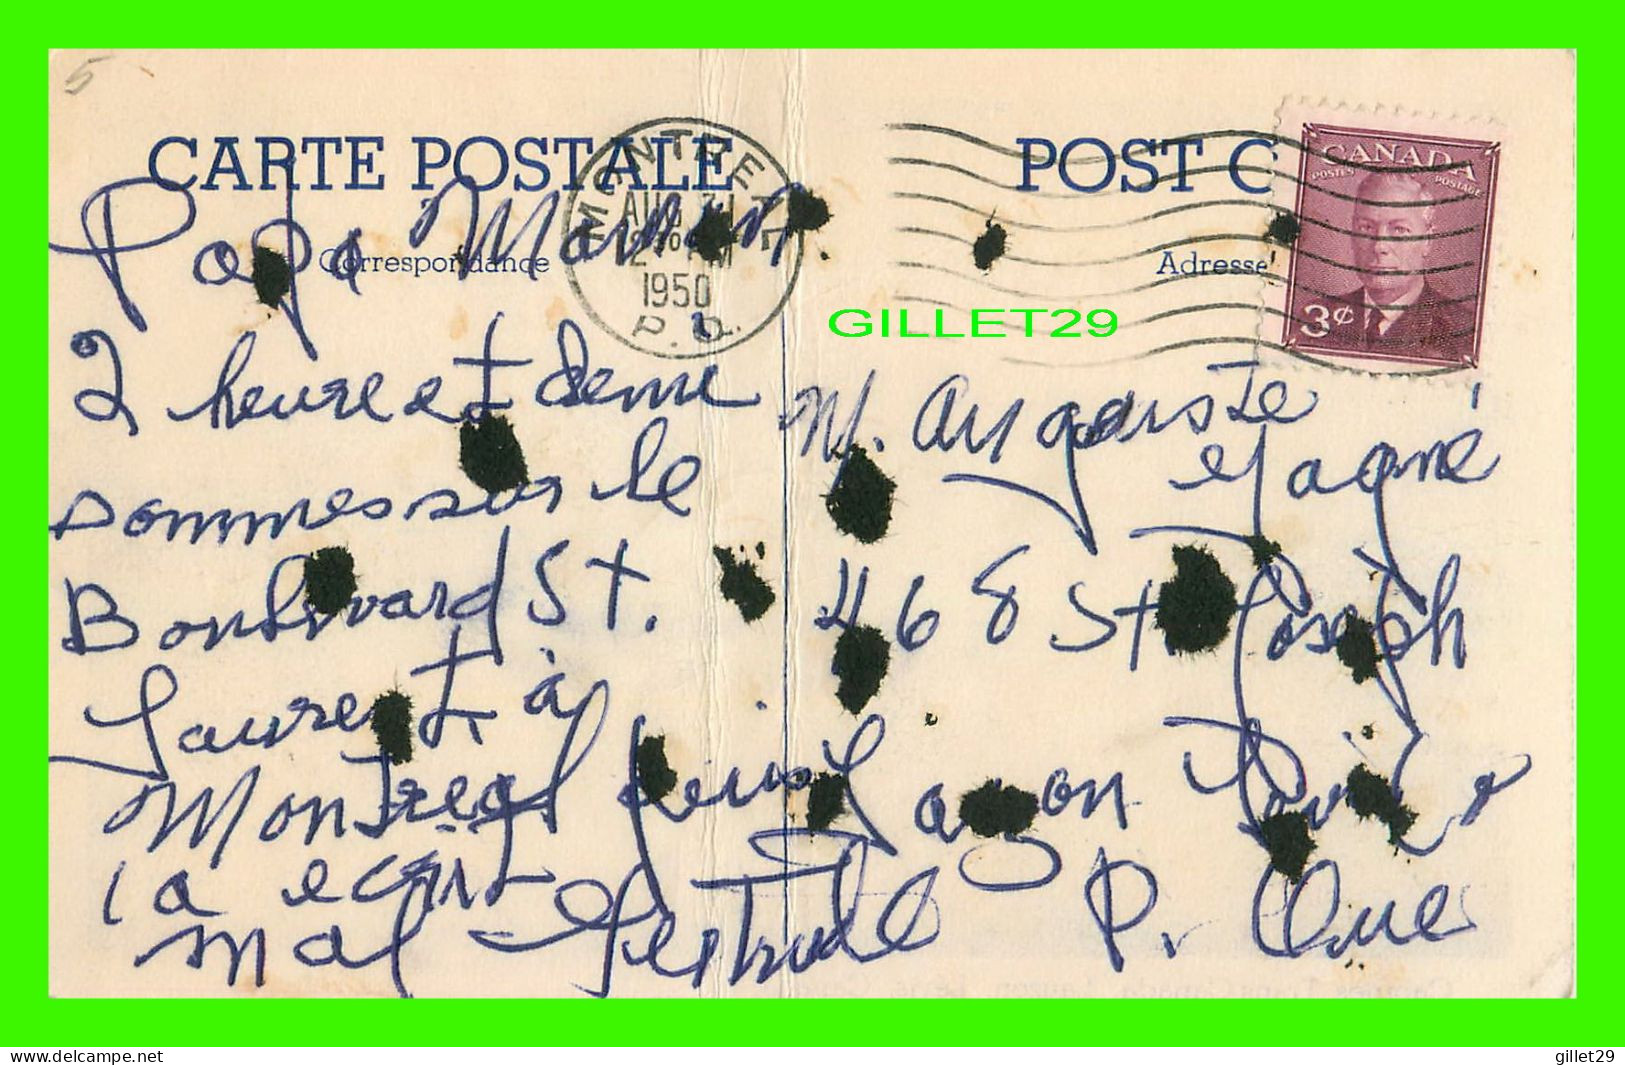 5
CARTE POSTALE
POST C
Correspondance
Adresse
MONTREAL
AUG 31
12 PM
1950
P.Q.
CANADA
POSTES POSTAGE
3¢
GILLET29
Papa Maman.
2 heure et demi
sommes sur le
Boulevard St.
Laurent à
Montreal
ca ecrit
mal Gertrude
M. Auguste
Gagné
468 St. Joseph
Lauzon
P. Que
delcampe.net
gillet29